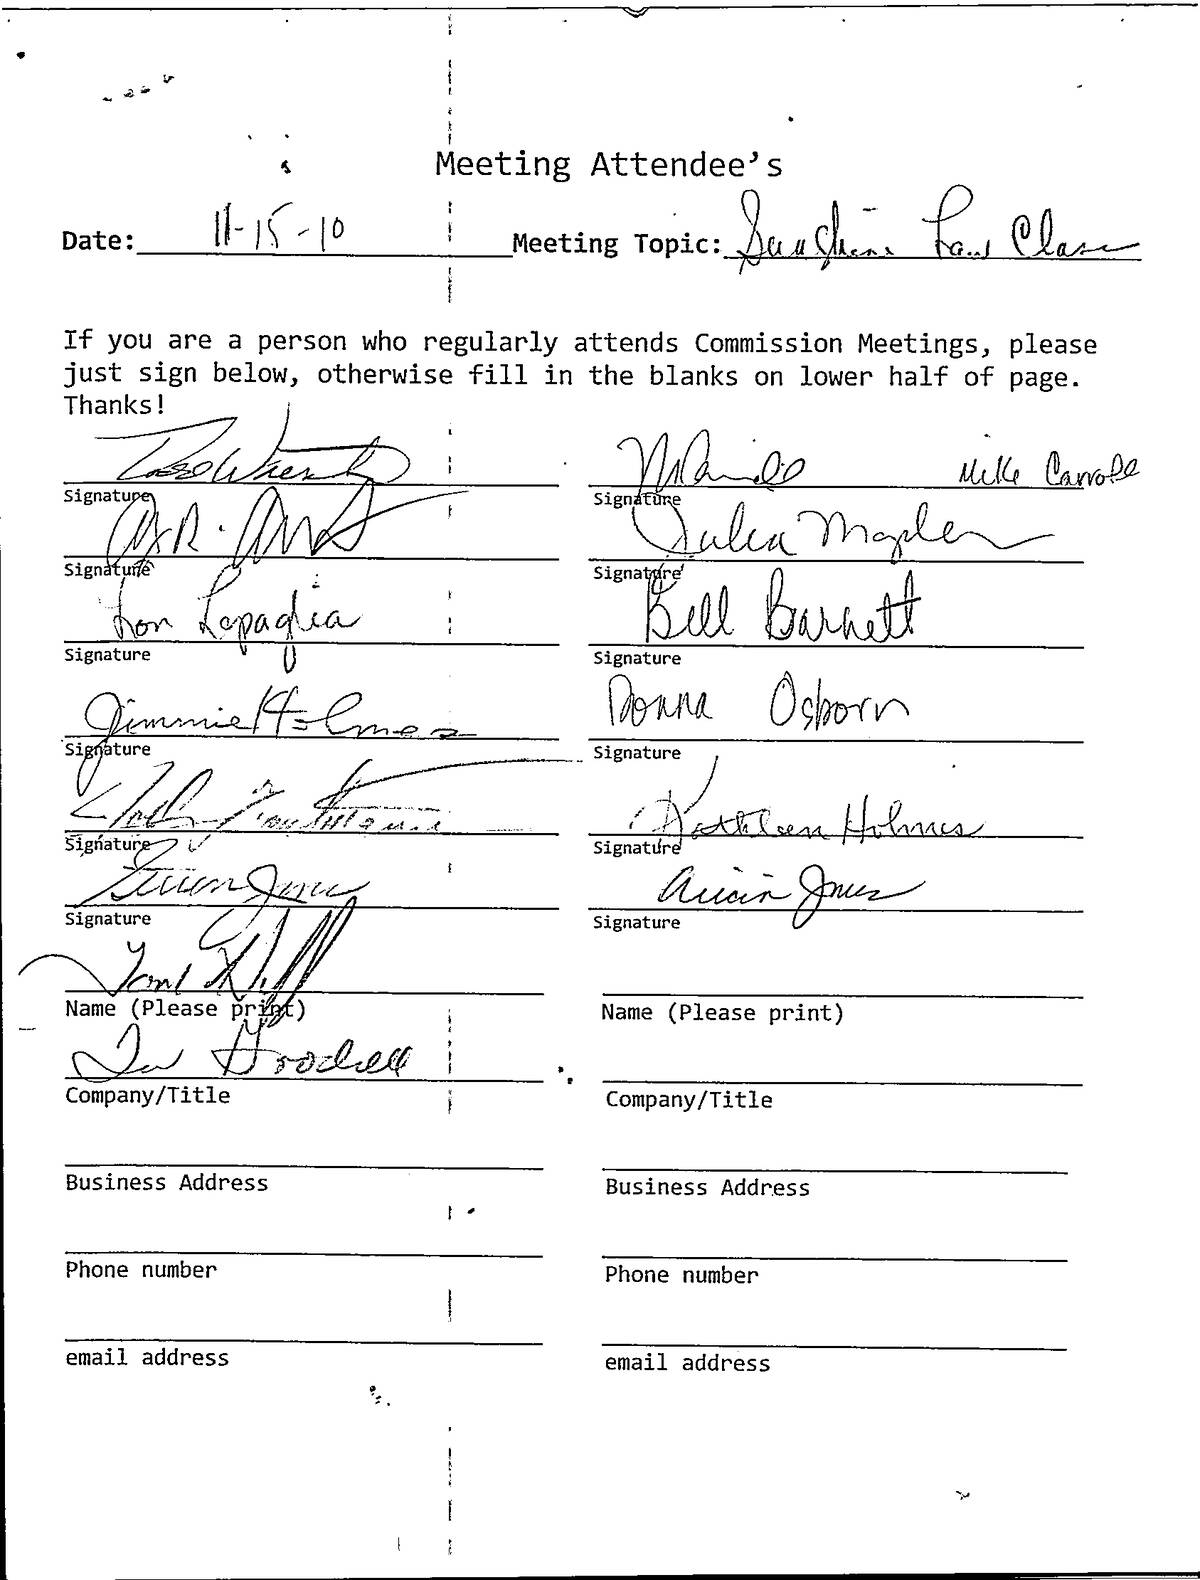 Meeting Attendee's
Date: 11-15-10 Meeting Topic: Sunshine Law Class
If you are a person who regularly attends Commission Meetings, please
just sign below, otherwise fill in the blanks on lower half of page.
Thanks!
Mike Carroll
Signature Signature
Julia Maples
Signature Signature
Ron Lopaglia Bill Barnett
Signature Signature
Jimmie Holmes Donna Osborn
Signature Signature
Kathleen Holmes
Signature Signature
Steven Jones Alicia Jones
Signature Signature
Tom
Name (Please print) Name (Please print)
Company/Title Company/Title
Business Address Business Address
Phone number Phone number
email address email address